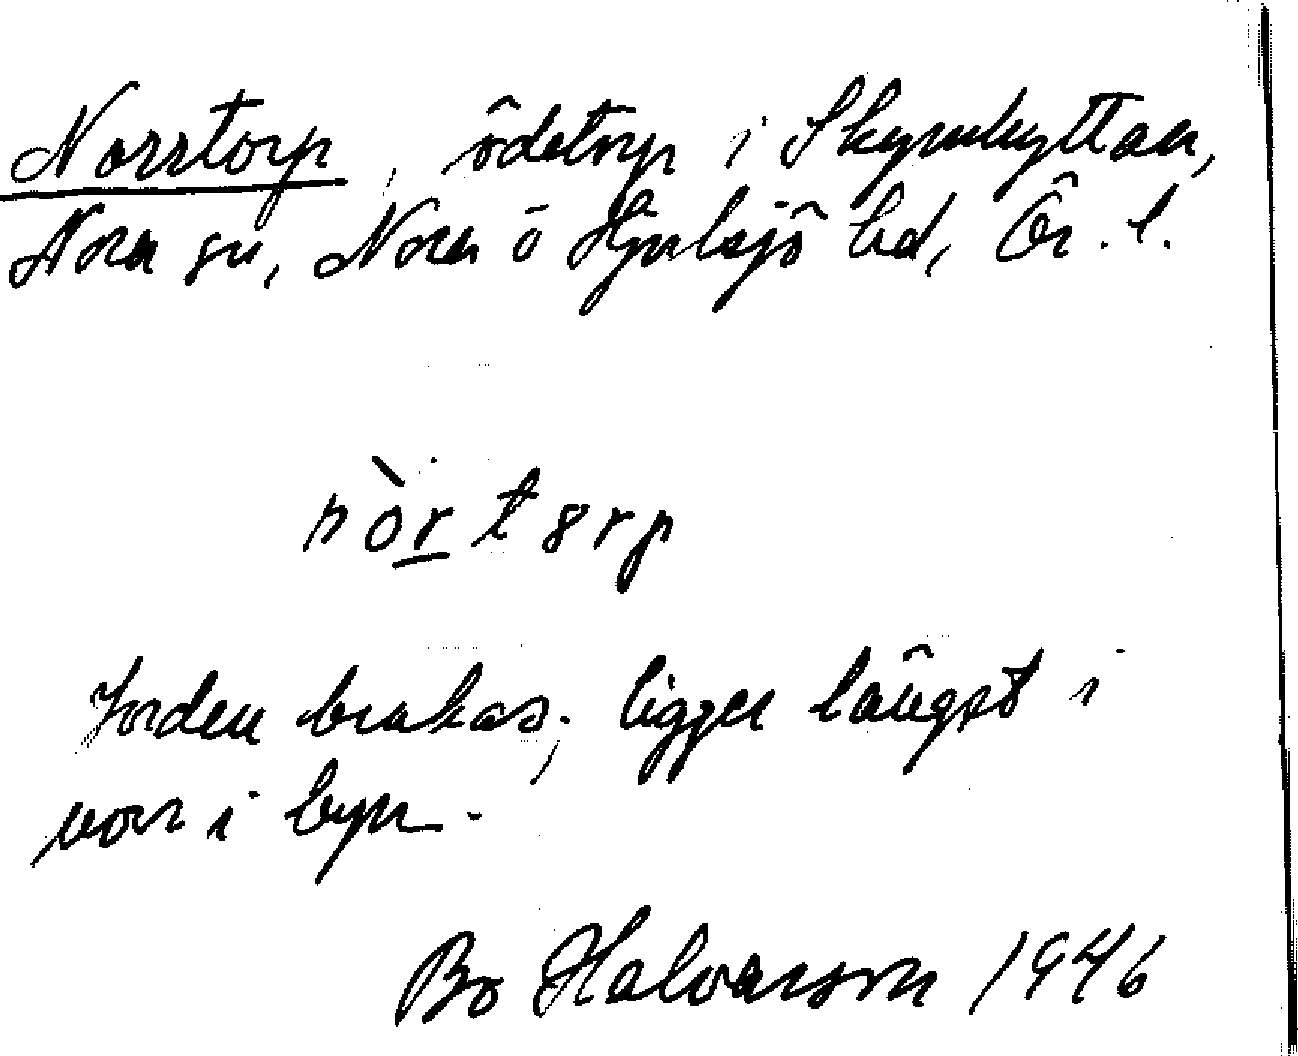 Norrtorp, ödetorp i Skymhyttan,
Nora sn, Nora o Hjulsjö hd, Ör. l.
nòrtorp
Jorden brukas; ligger längst i
norr i byn.
Bo Halvarson 1946